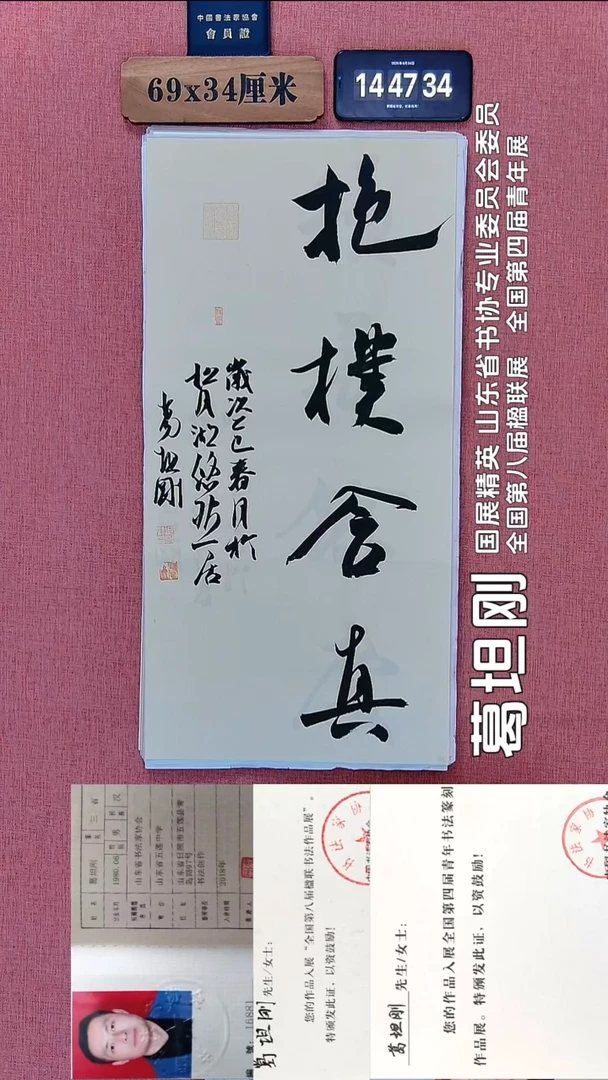 中國書法家協會
會員證
69x34厘米
14 47 34
抱樸含真
歲次乙巳春月於
松月湖悠然一居
葛坦剛
葛坦刚
国展精英 山东省书协专业委员会委员
全国第八届楹联展 全国第四届青年展
姓名 葛坦刚
1980.06
男
汉
山东省书法家协会
山东省五莲中学
书法创作
2018年
葛坦刚 先生/女士：
您的作品入展“全国第八届楹联书法作品展”。
特颁发此证，以资鼓励！
葛坦刚 先生/女士：
您的作品入展全国第四届青年书法篆刻
作品展。特颁发此证，以资鼓励！